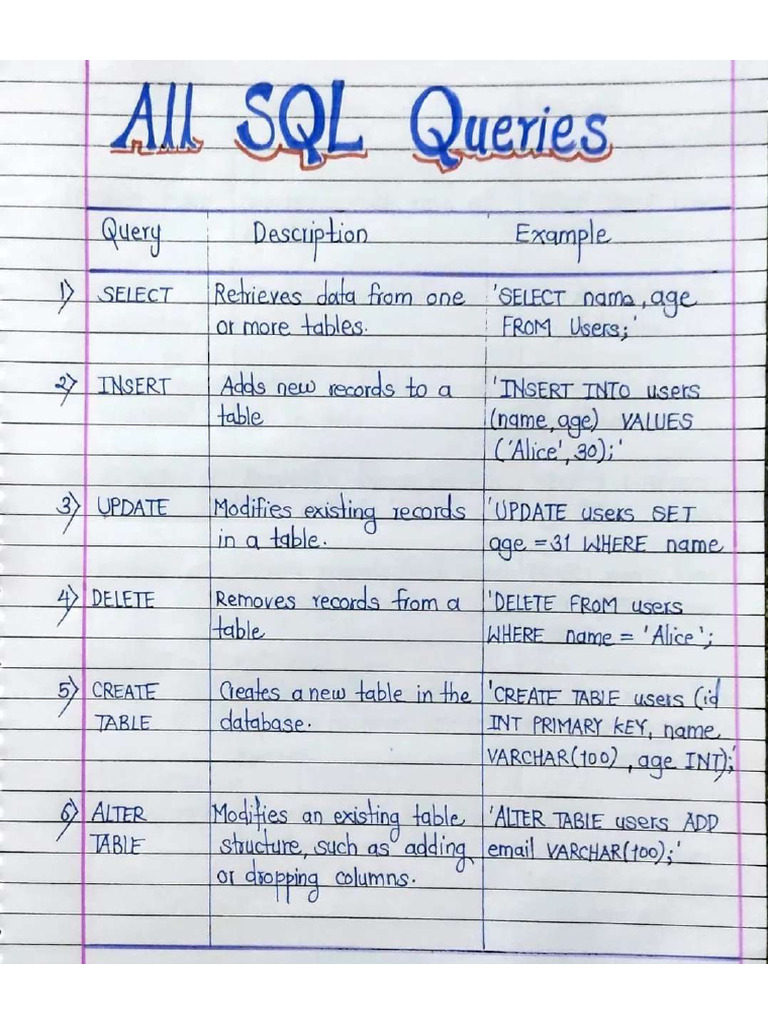 All SQL Queries
Query Description Example
1) SELECT Retrieves data from one 'SELECT name, age
or more tables. FROM Users;'
2) INSERT Adds new records to a 'INSERT INTO users
table (name, age) VALUES
('Alice', 30);'
3) UPDATE Modifies existing records 'UPDATE users SET
in a table. age = 31 WHERE name
4) DELETE Removes records from a 'DELETE FROM users
table WHERE name = 'Alice';
5) CREATE Creates a new table in the 'CREATE TABLE users (id
TABLE database. INT PRIMARY KEY, name
VARCHAR(100), age INT);'
6) ALTER Modifies an existing table 'ALTER TABLE users ADD
TABLE structure, such as adding email VARCHAR(100);'
or dropping columns.